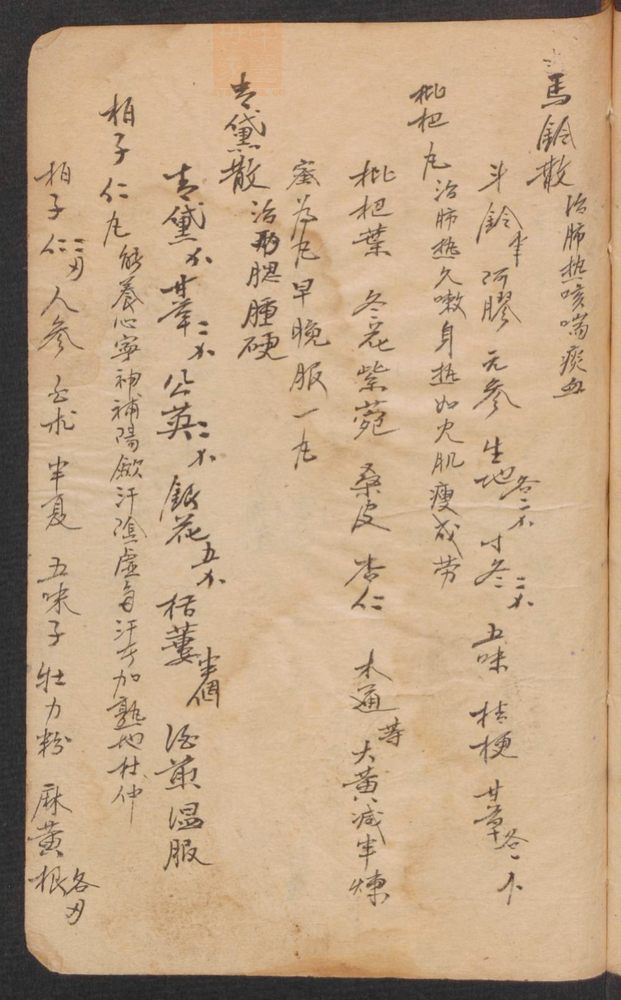 馬鈴散 治肺热咳喘痰血
斗鈴 阿膠 元参 生地 寸冬 五味 桔梗 甘草
枇杷丸 治肺热久嗽身热如火肌瘦成劳
枇杷葉 冬花 紫菀 桑皮 杏仁 木通 等 大黄减半煉
蜜为丸早晚服一丸
青黛散 治腮腫硬
青黛 甘草 公英 銀花 栝蔞 半個 酒煎温服
柏子仁丸 能養心寧神補陽歛汗陰虚多汗 加熟地杜仲
柏子仁 人参 白术 半夏 五味子 牡力粉 麻黄根